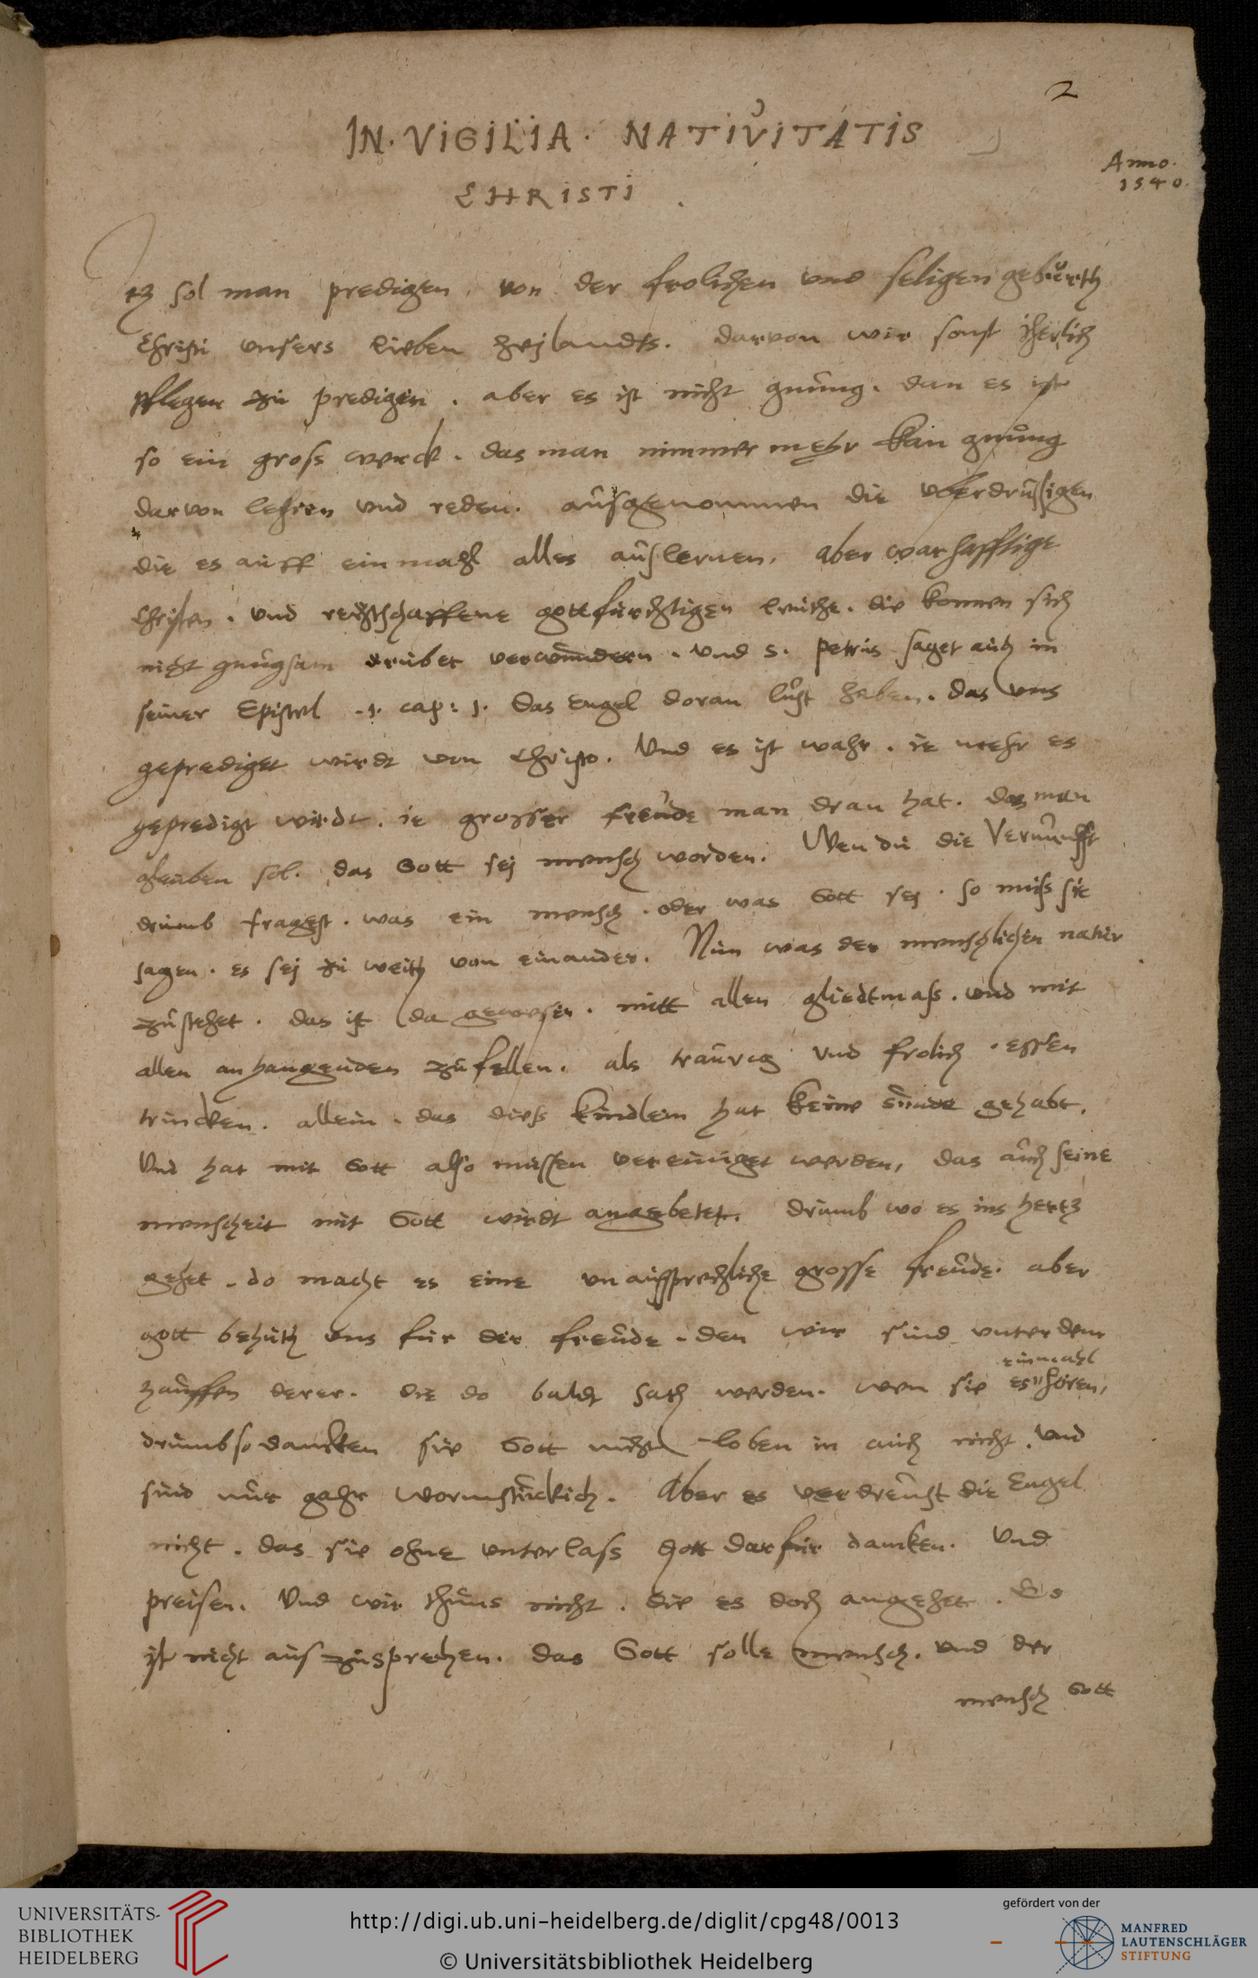 2
IN · VIGILIA · NATIVITATIS
CHRISTI .
Anno.
1540.
Itz sol man predigen, von der frolichen und seligen gebürth
Christi unsers lieben heylandts. darvon wir sonst iherlich
pflegen zu predigen . aber es ist nicht gnüng. dan es ist
so ein gross werck . das man nimmer mehr kan gnüng
darvon lehren und reden. aüsgenommen die überdrüssigen
die es auff ein mahl alles aüslernen. Aber warhafftige
Christen . und rechtschaffene gottfürchtigen leuthe. die konnen sich
nicht gnügsam drüber verwundern . und S. petrus saget auch in
seiner Epistel .1. cap: 1. das Engel doran lüst haben. das uns
geprediget wirdt von Christo. Und es ist wahr . ie mehr es
gepredigt wirdt. ie grosser freüde man dran hat. das man
gleuben sol. das Gott sey mensch worden. Wen du die Vernunfft
drumb fragest . was ein mensch . oder was Gott sey . so muss sie
sagen . es sey zu weith von einander. Nun was der menschlichen natur
züstehet . das ist da gewesen . mitt allen gliedtmass . und mit
allen anhangenden züfellen. als traurig und frolich . essen
trincken. allein . das diess kindlein hat keine sünde gehabt.
Und hat mit Gott also müssen vereiniget werden, das auch seine
menscheit mit Gott wirdt angebetet. drumb wo es ins hertz
gehet . do macht es eine unaussprechliche grosse freüde. aber
gott behüth uns für der freüde . den wir sind unter dem
hauffen derer. die do baldt sath werden. wen sie es einmahl hören,
drumb so dancken sie Gott nicht loben in auch nicht . und
sind nür gahr wormstückich. Aber es verdreüst die Engel
nicht . das sie ohne unterlass gott darfür dancken. Und
preisen. Und wir thuns nicht . die es doch angehet . Es
ist nicht aus zusprechen. das Gott solle mensch . und der
mensch Gott
UNIVERSITÄTS-
BIBLIOTHEK
HEIDELBERG
http://digi.ub.uni-heidelberg.de/diglit/cpg48/0013
© Universitätsbibliothek Heidelberg
gefördert von der
MANFRED
LAUTENSCHLÄGER
STIFTUNG